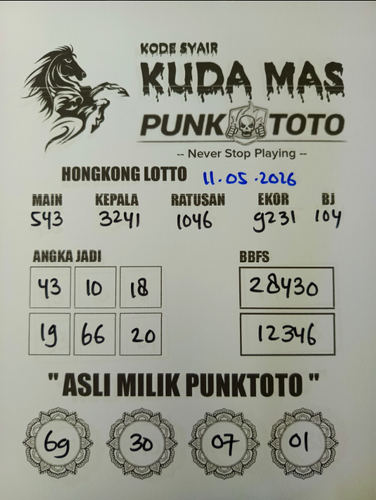 KODE SYAIR
KUDA MAS
PUNK TOTO
-- Never Stop Playing --
HONGKONG LOTTO 11.05.2026
MAIN KEPALA RATUSAN EKOR BJ
543 3241 1046 9231 104
ANGKA JADI BBFS
43 10 18 28430
19 66 20 12346
" ASLI MILIK PUNKTOTO "
69 30 07 01